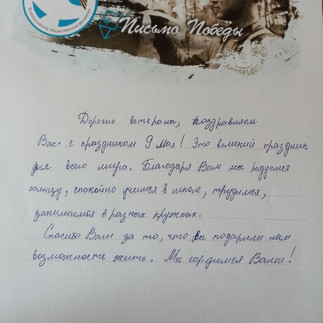 Письмо Победы
Дорогие ветераны, поздравляем
Вас с праздником 9 Мая! Это великий праздник
для всего мира. Благодаря Вам мы радуемся
солнцу, спокойно учимся в школе, трудимся,
занимаемся в разных кружках.
Спасибо Вам за то, что Вы подарили нам
возможность жить. Мы гордимся Вами!